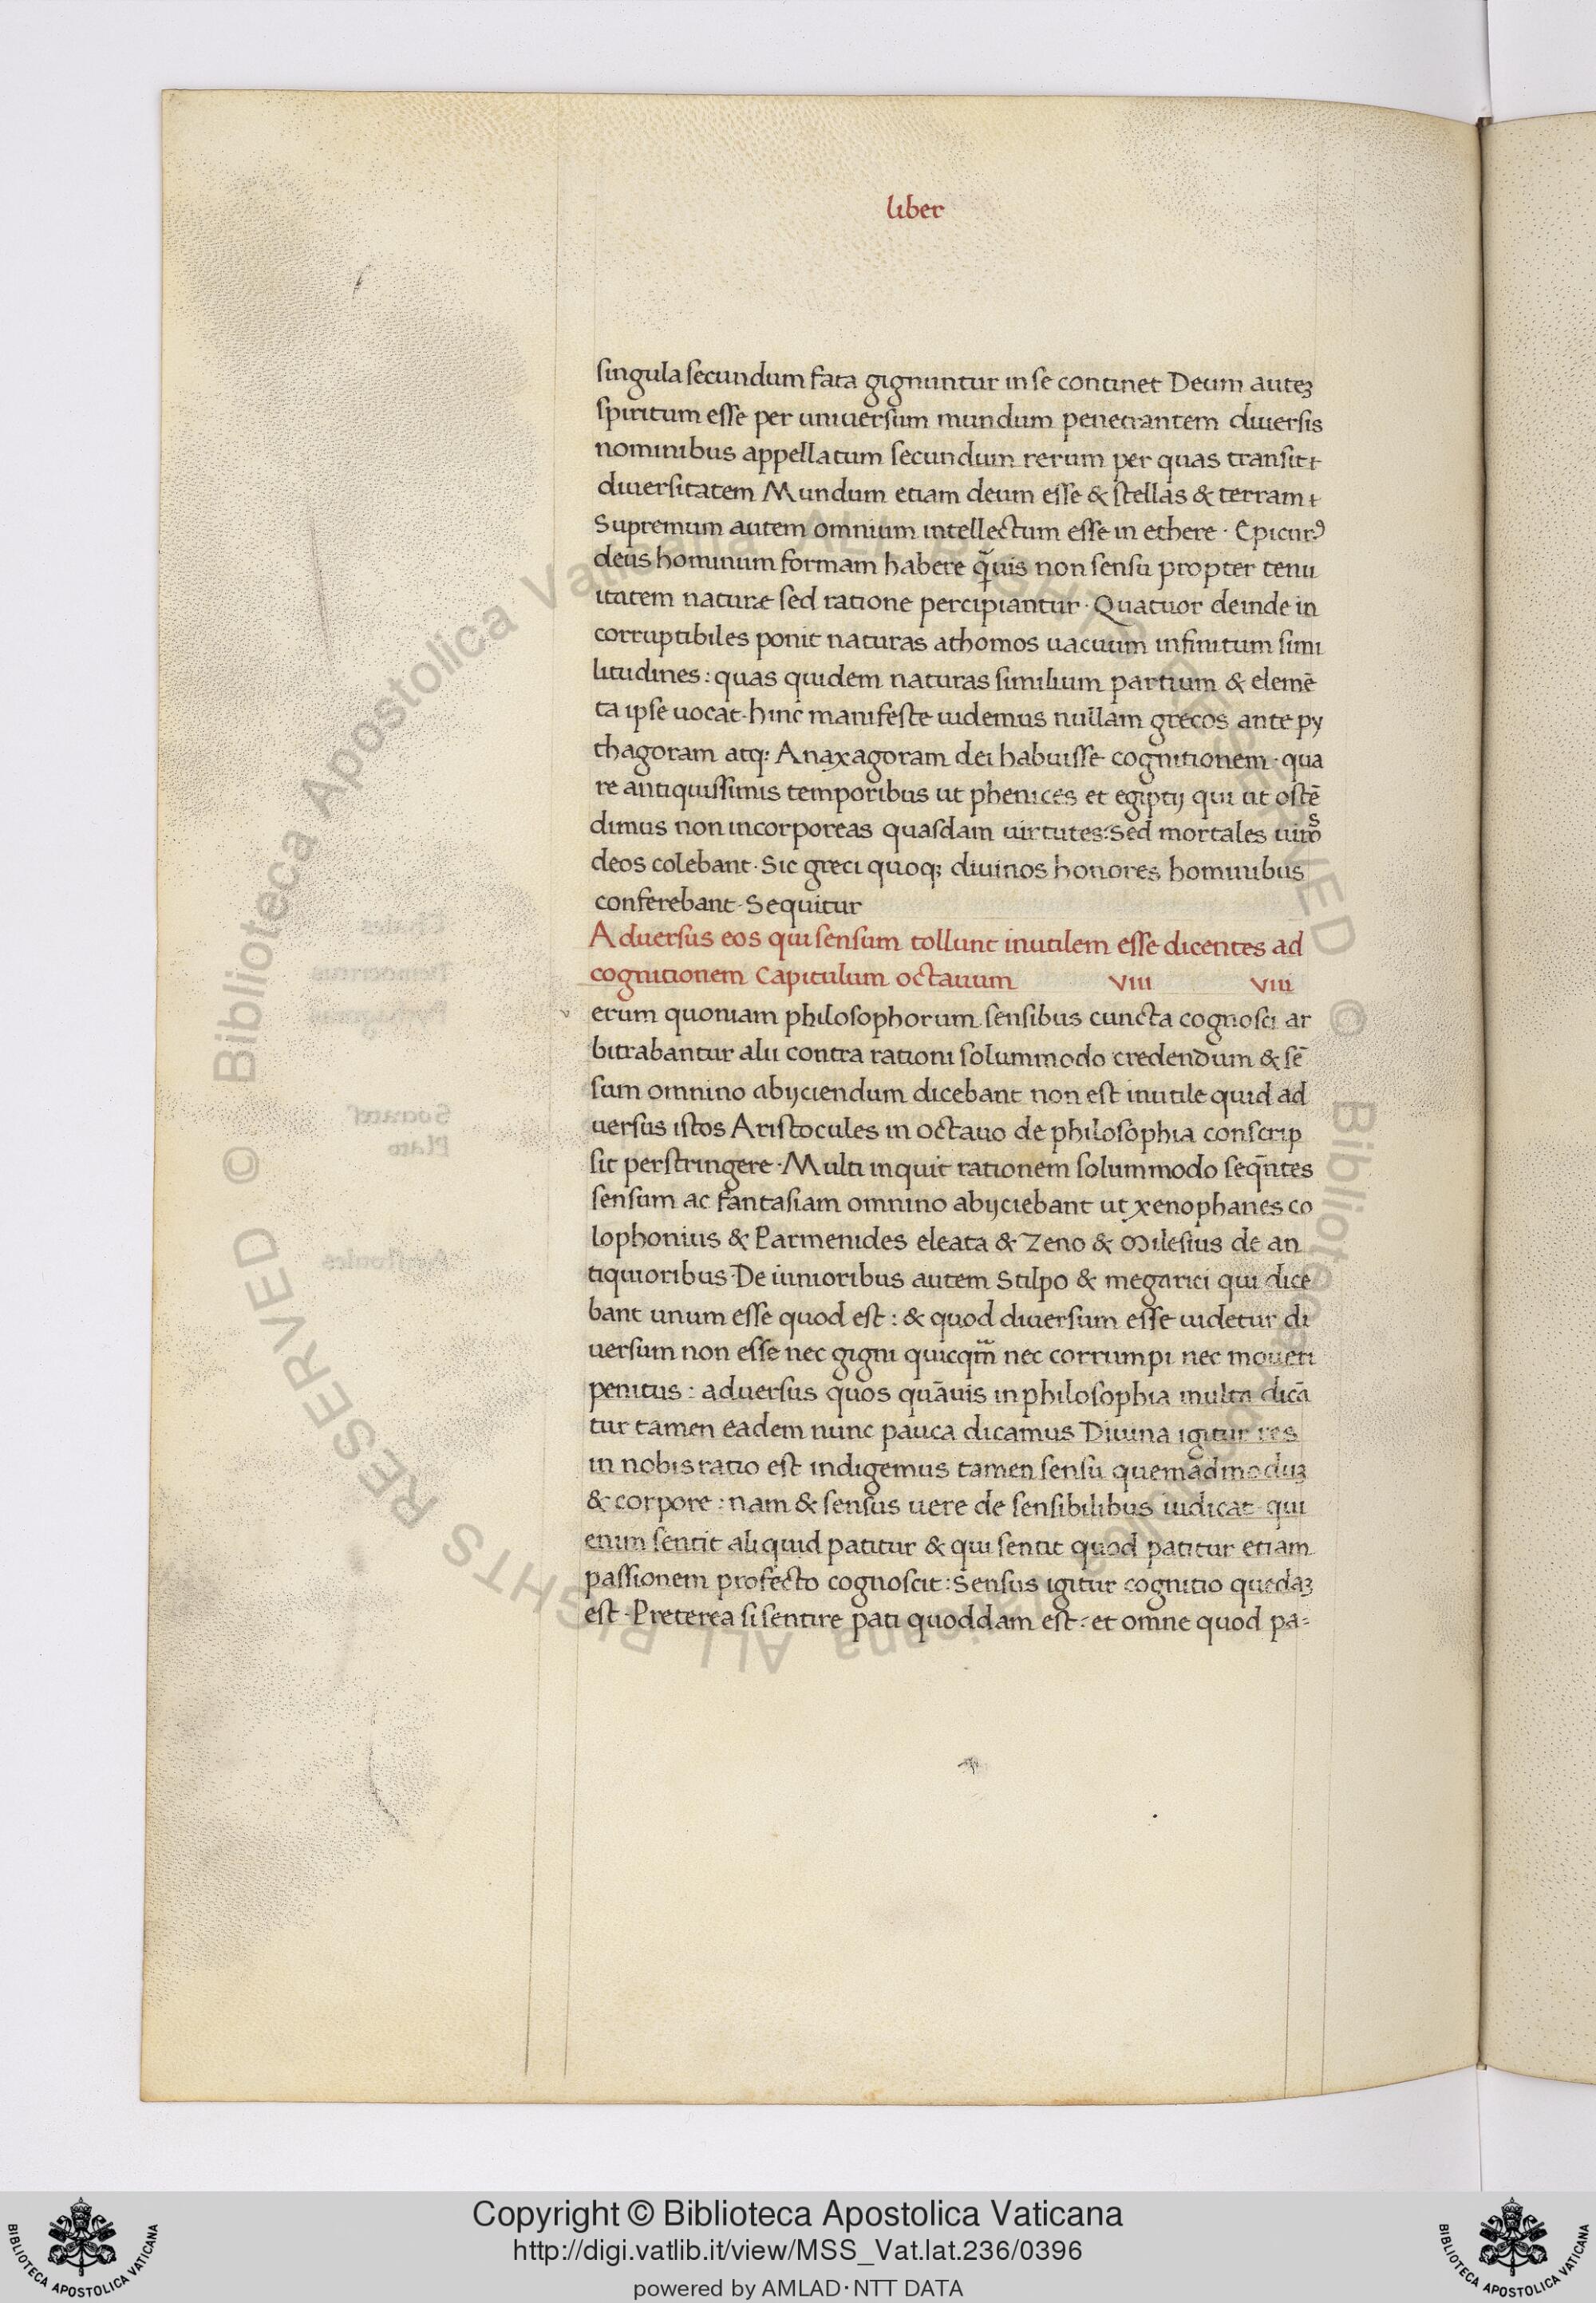 liber
singula secundum fata gignuntur in se continet Deum auteꝫ
spiritum esse per uniuersum mundum penetrantem diuersis
nominibus appellatum secundum rerum per quas transit
diuersitatem Mundum etiam deum esse & stellas & terram
Supremum autem omnium intellectum esse in ethere · Epicurꝰ
deus hominum formam habere q̃uis non sensu propter tenu
itatem naturæ sed ratione percipiantur · Quatuor deinde in
corruptibiles ponit naturas athomos uacuum infinitum simi
litudines : quas quidem naturas similium partium & elemē
ta ipse uocat · hinc manifeste uidemus nullam grecos ante py
thagoram atq: Anaxagoram dei habuisse cognitionem · qua
re antiquissimis temporibus ut phenices et egiptij qui ut ostē
dimus non incorporeas quasdam uirtutes : Sed mortales uiros
deos colebant · Sic greci quoqꝫ diuinos honores hominibus
conferebant · Sequitur
Aduersus eos qui sensum tollunt inutilem esse dicentes ad
cognitionem Capitulum octauum VIII VIII
v erum quoniam philosophorum sensibus cuncta cognosci ar
bitrabantur alii contra rationi solummodo credendum & sē
sum omnino abijciendum dicebant non est inutile quid ad
uersus istos Aristocules in octauo de philosophia conscrip
sit perstringere · Multi inquit rationem solummodo seq̄ntes
sensum ac fantasiam omnino abijciebant ut xenophanes co
lophonius & Parmenides eleata & Zeno & Milesius de an
tiquioribus · De iunioribus autem Stilpo & megarici qui dice
bant unum esse quod est : & quod diuersum esse uidetur di
uersum non esse nec gigni quicqm̃ nec corrumpi nec moueri
penitus : aduersus quos quāuis in philosophia multa dicā
tur tamen eadem nunc pauca dicamus Diuina igitur res
in nobis ratio est indigemus tamen sensu quemadmoduꝫ
& corpore : nam & sensus uere de sensibilibus iudicat · qui
enim sentit aliquid patitur & qui sentit quod patitur etiam
passionem profecto cognoscit : Sensus igitur cognitio quedaꝫ
est · Preterea si sentire pati quoddam est : et omne quod pa-
Copyright © Biblioteca Apostolica Vaticana
http://digi.vatlib.it/view/MSS_Vat.lat.236/0396
powered by AMLAD·NTT DATA
BIBLIOTECA APOSTOLICA VATICANA
BIBLIOTECA APOSTOLICA VATICANA
© Biblioteca Apostolica Vaticana ALL RIGHTS RESERVED
© Biblioteca Apostolica Vaticana ALL RIGHTS RESERVED